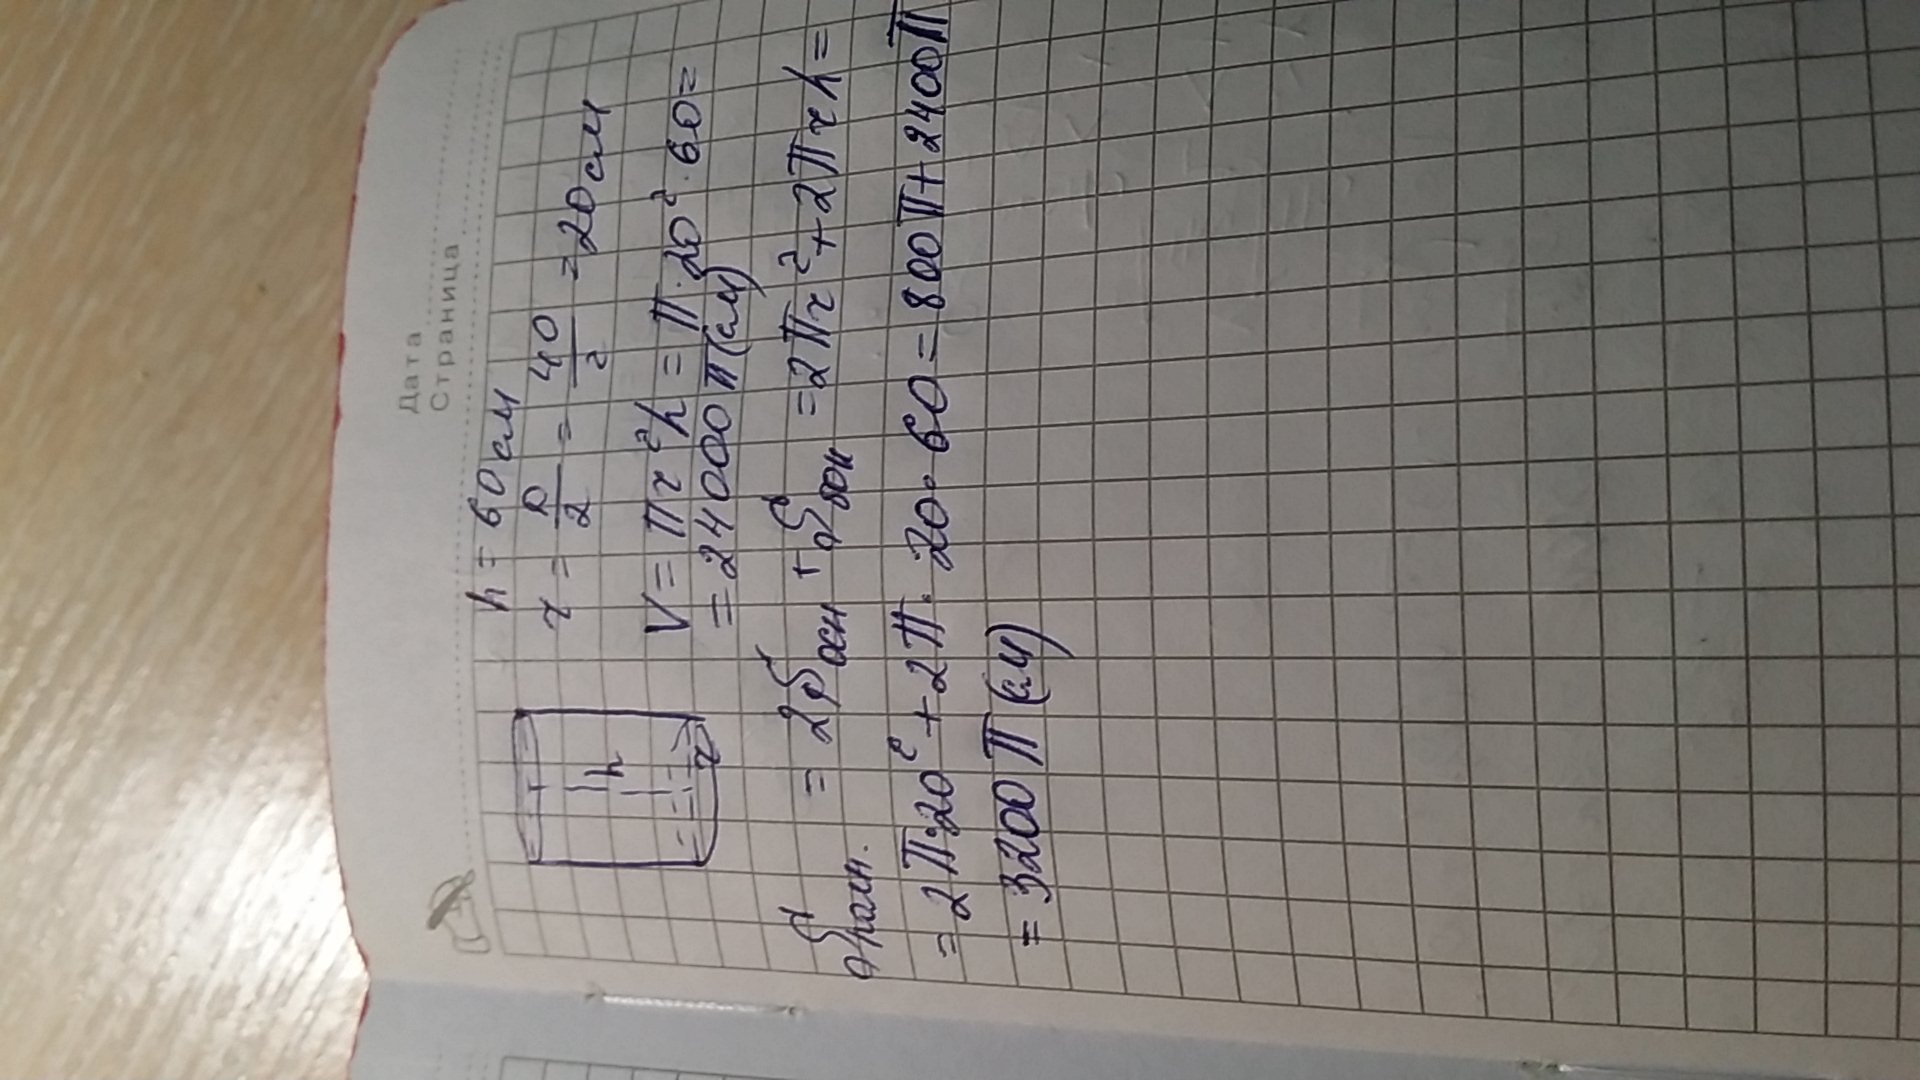 Дата
Страница
h = 60 см
r = D/2 = 40/2 = 20 см
h
r
V = πr²h = π·20²·60 =
= 24000π (см)
Sполн. = 2Sосн + Sбок = 2πr² + 2πrh =
= 2π·20² + 2π·20·60 = 800π + 2400π
= 3200π (см)